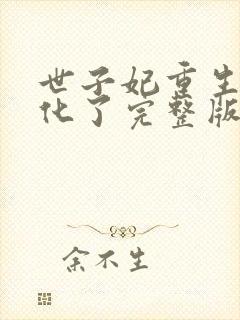 世子妃重生
化了完整版
余不生